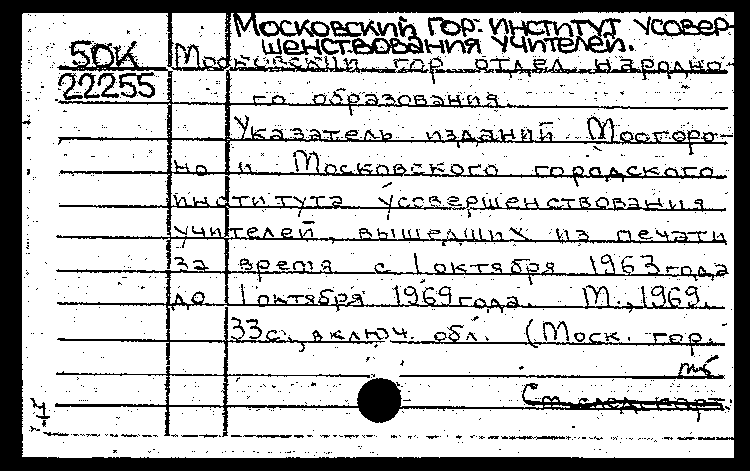 Московский гор. институт усовер-
шенствования учителей.
50К Московский гор отдел народно-
22255 го образования.
Указатель изданий Мосгоро-
но и Московского городского
института усовершенствования
учителей, вышедших из печати
за время с 1 октября 1963 года
до 1 октября 1969 года. М., 1969.
33с., включ. обл. (Моск. гор.
См. след. карт.